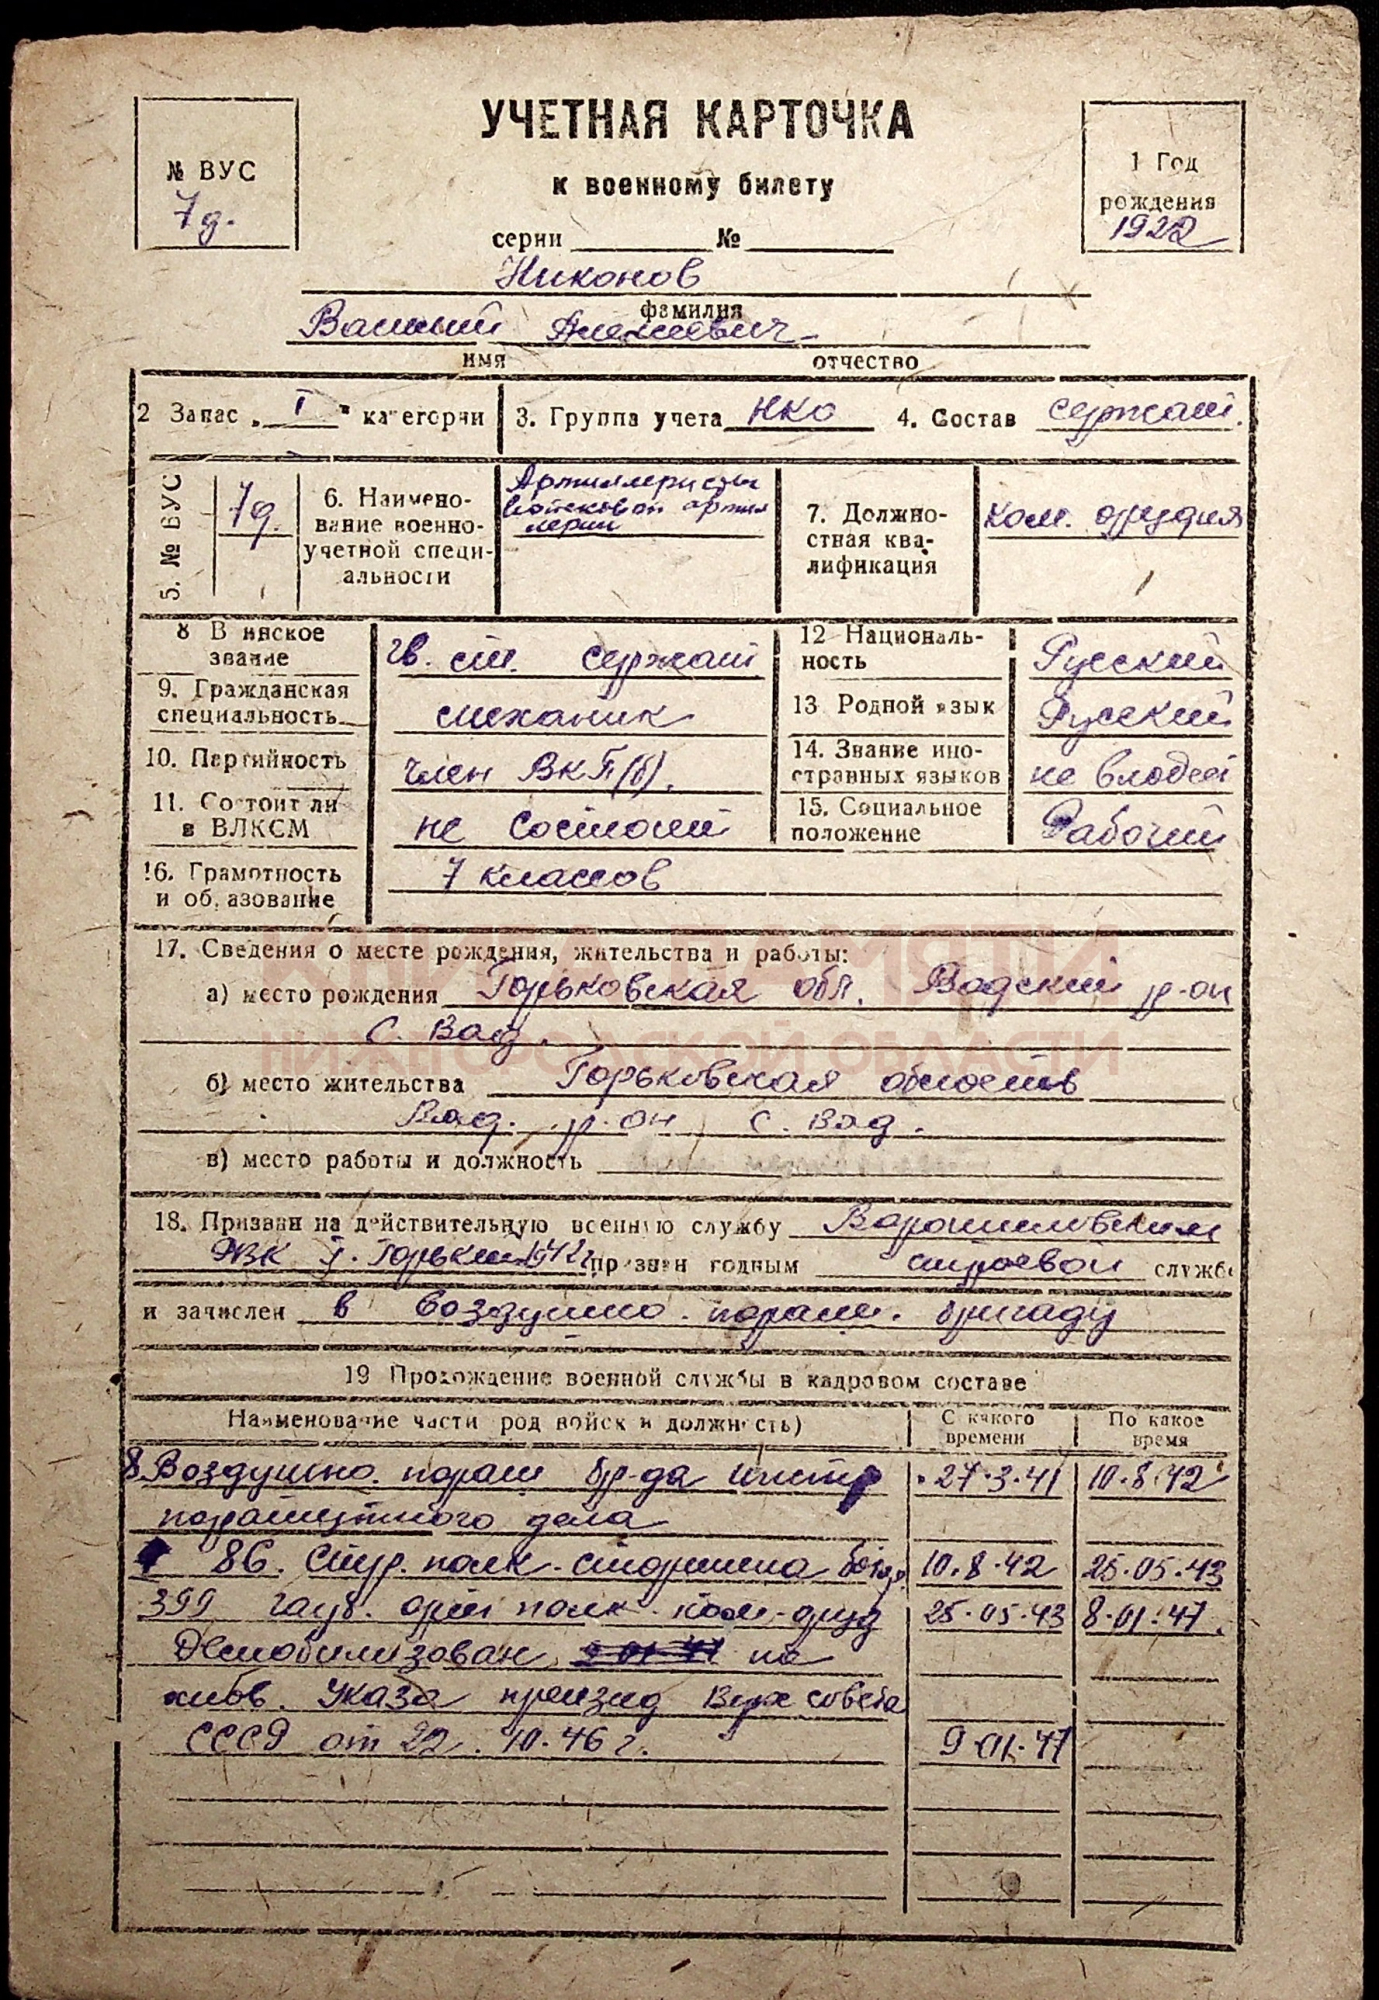 УЧЕТНАЯ КАРТОЧКА
к военному билету
серии № 
№ ВУС
7д.
1 Год
рождения
1922
Никонов
фамилия
Василий Алексеевич
имя отчество
2 Запас „ I " категории
3. Группа учета НКО
4. Состав сержант.
5. № ВУС
7д.
6. Наимено-
вание военно-
учетной специ-
альности
Артиллеристы
войсковой артил
лерии
7. Должно-
стная ква-
лификация
ком. орудия
8 Воинское
звание
гв. ст. сержант
9. Гражданская
специальность
механик
10. Партийность
член ВКП(б).
11. Состоит ли
в ВЛКСМ
не состоит
12 Националь-
ность
Русский
13 Родной язык
Русский
14. Знание ино-
странных языков
не владеет
15. Социальное
положение
Рабочий
16. Грамотность
и образование
7 классов
17. Сведения о месте рождения, жительства и работы:
а) место рождения Горьковская обл. Вадский р-он
с. Вад.
КНИГА ПАМЯТИ
НИЖЕГОРОДСКОЙ ОБЛАСТИ
б) место жительства Горьковская область
Вад. р-он с. Вад.
в) место работы и должность
18. Призван на действительную военную службу Ворошиловским
РВК г. Горький призван годным строевой службе
и зачислен в воздушно. параш. бригаду
19 Прохождение военной службы в кадровом составе
Наименование части род войск и должность)
С какого
времени
По какое
время
8 Воздушно. параш бр-да инстр 27.3.41 10.8.42
парашютного дела
86. Стр. полк. старшина 10.8.42 25.05.43
399 гауб. арт полк. ком. оруд 25.05.43 8.01.47.
Демобилизован на
Указа презид Верх совета
СССР от 22.10.46 г. 9.01.47